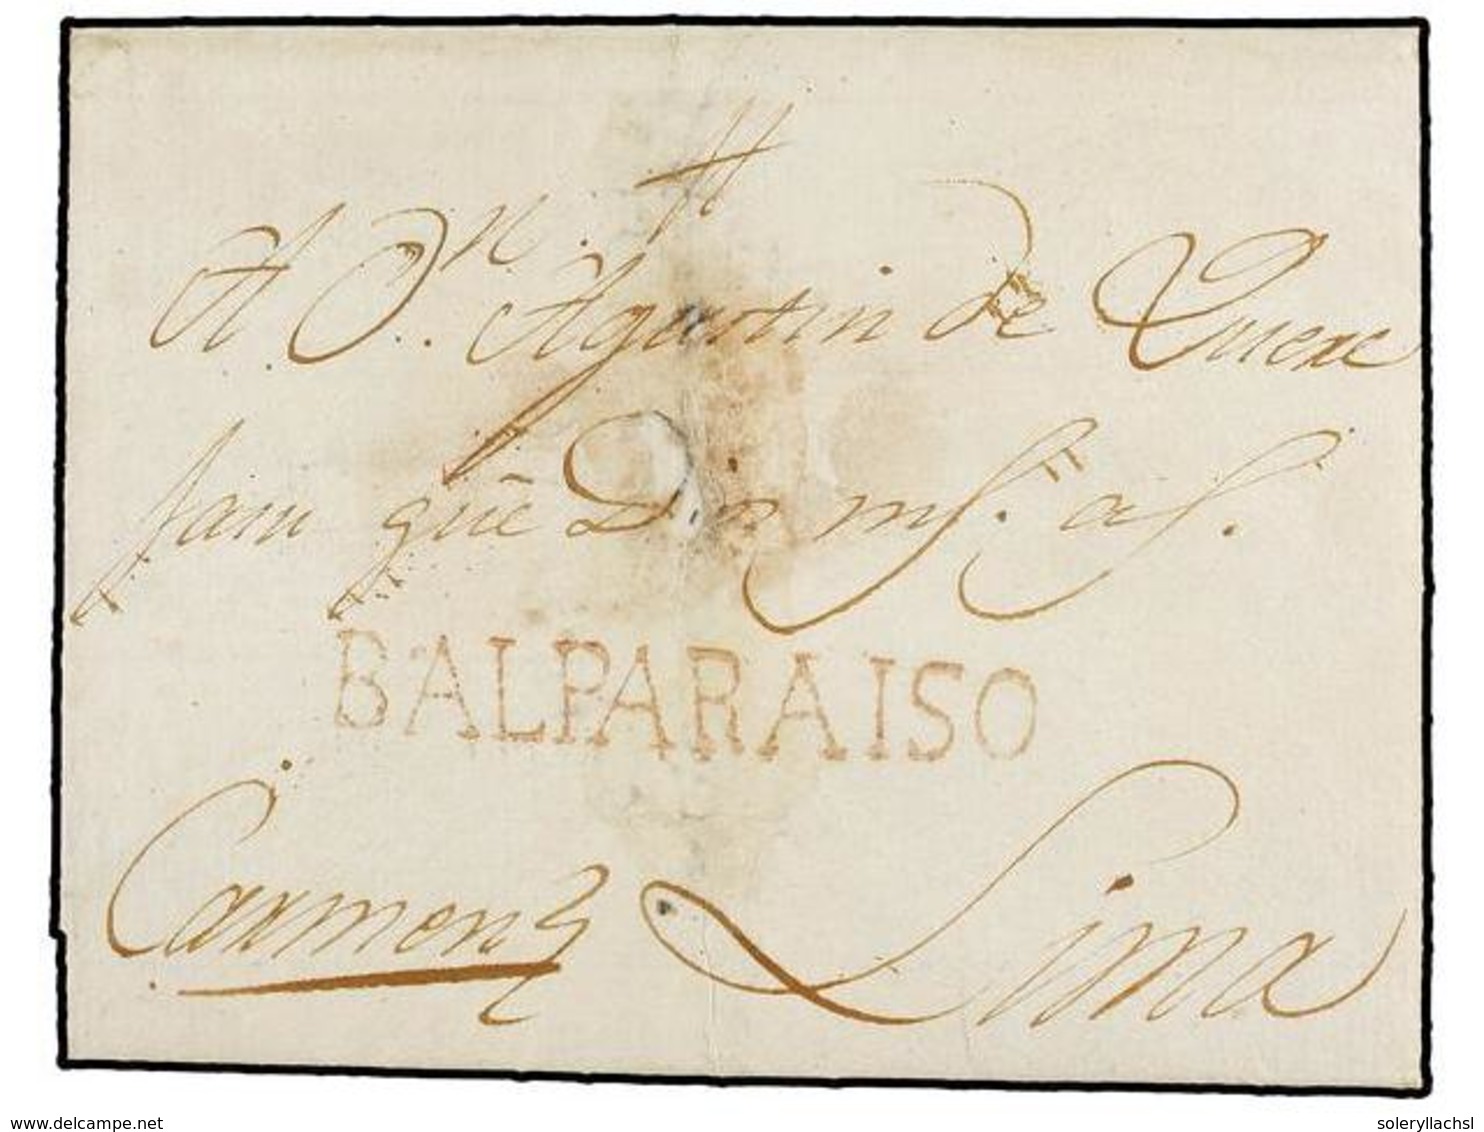 A Dn. Agustin de Quexe
jam que D. g. ms. as.
BALPARAISO
Carmen Lima
www.delcampe.net
soleryllachsl